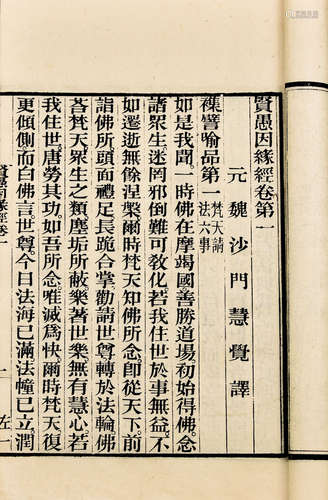 賢愚因緣經卷第一
元魏沙門慧覺譯
襍譬喻品第一 梵天請法六事
如是我聞一時佛在摩竭國善勝道場初始得佛念
諸眾生迷罔邪倒難可敎化若我住世於事無益不
如遷逝無餘涅槃爾時梵天知佛所念卽從天下前
詣佛所頭面禮足長跪合掌勸請世尊轉於法輪佛
荅梵天眾生之類塵垢所蔽樂著世樂無有慧心若
我住世唐勞其功如吾所念唯滅爲快爾時梵天復
更傾側而白佛言世尊今日法海已滿法幢已立潤
賢愚因緣經卷一
一